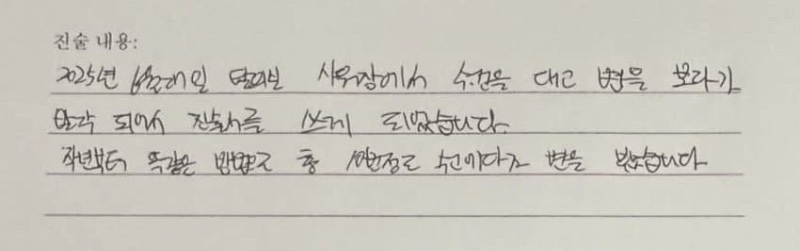 진술 내용:
2025년 사우장에서 수건을 대고 변을 보다가
발각 되어서 진술서를 쓰게 되었습니다.
작년부터 똑같은 방법으로 총 10번정도 수건에다가 변을 봤습니다